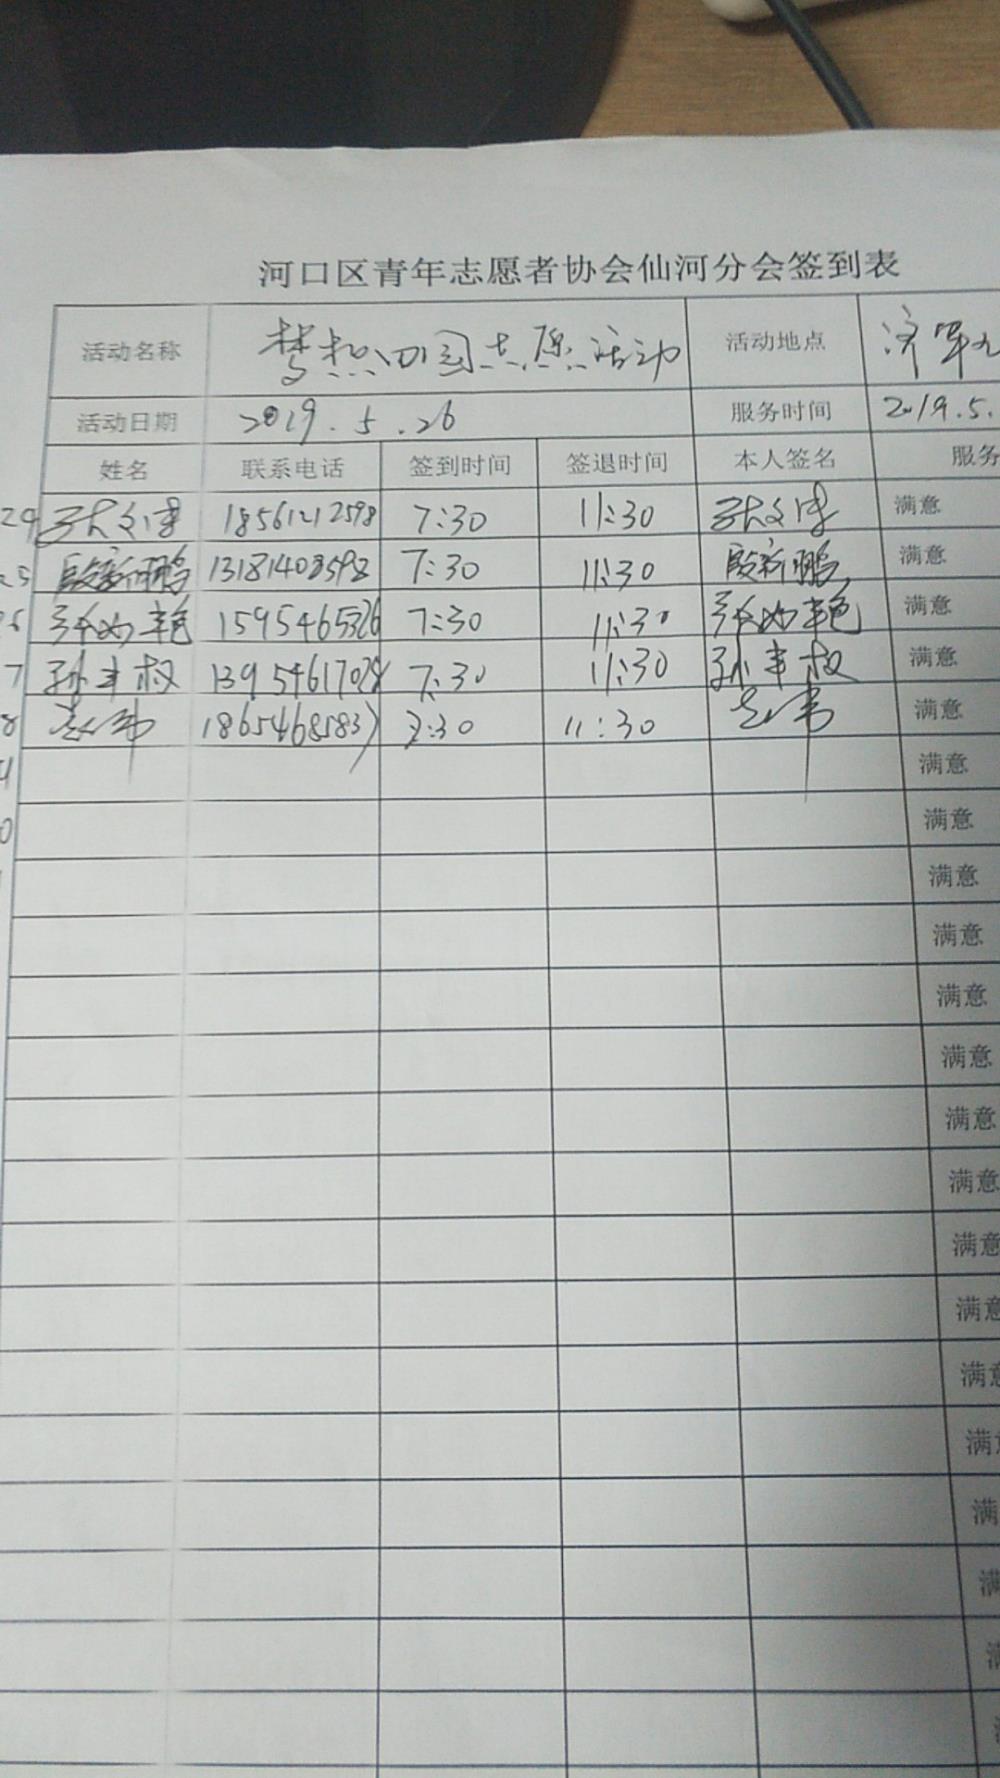 河口区青年志愿者协会仙河分会签到表
活动名称 梦想四国志愿活动 活动地点 济军九
活动日期 2019.5.26 服务时间 2019.5.
姓名 联系电话 签到时间 签退时间 本人签名 服务
24 张文博 18561212598 7:30 11:30 张文博 满意
25 殷新鹏 7:30 11:30 殷新鹏 满意
26 7:30 11:30 满意
7 孙丰权 7:30 11:30 孙丰权 满意
8 18654685837 7:30 11:30 满意
满意
满意
满意
满意
满意
满意
满意
满意
满意
满意
满意
满
满
满